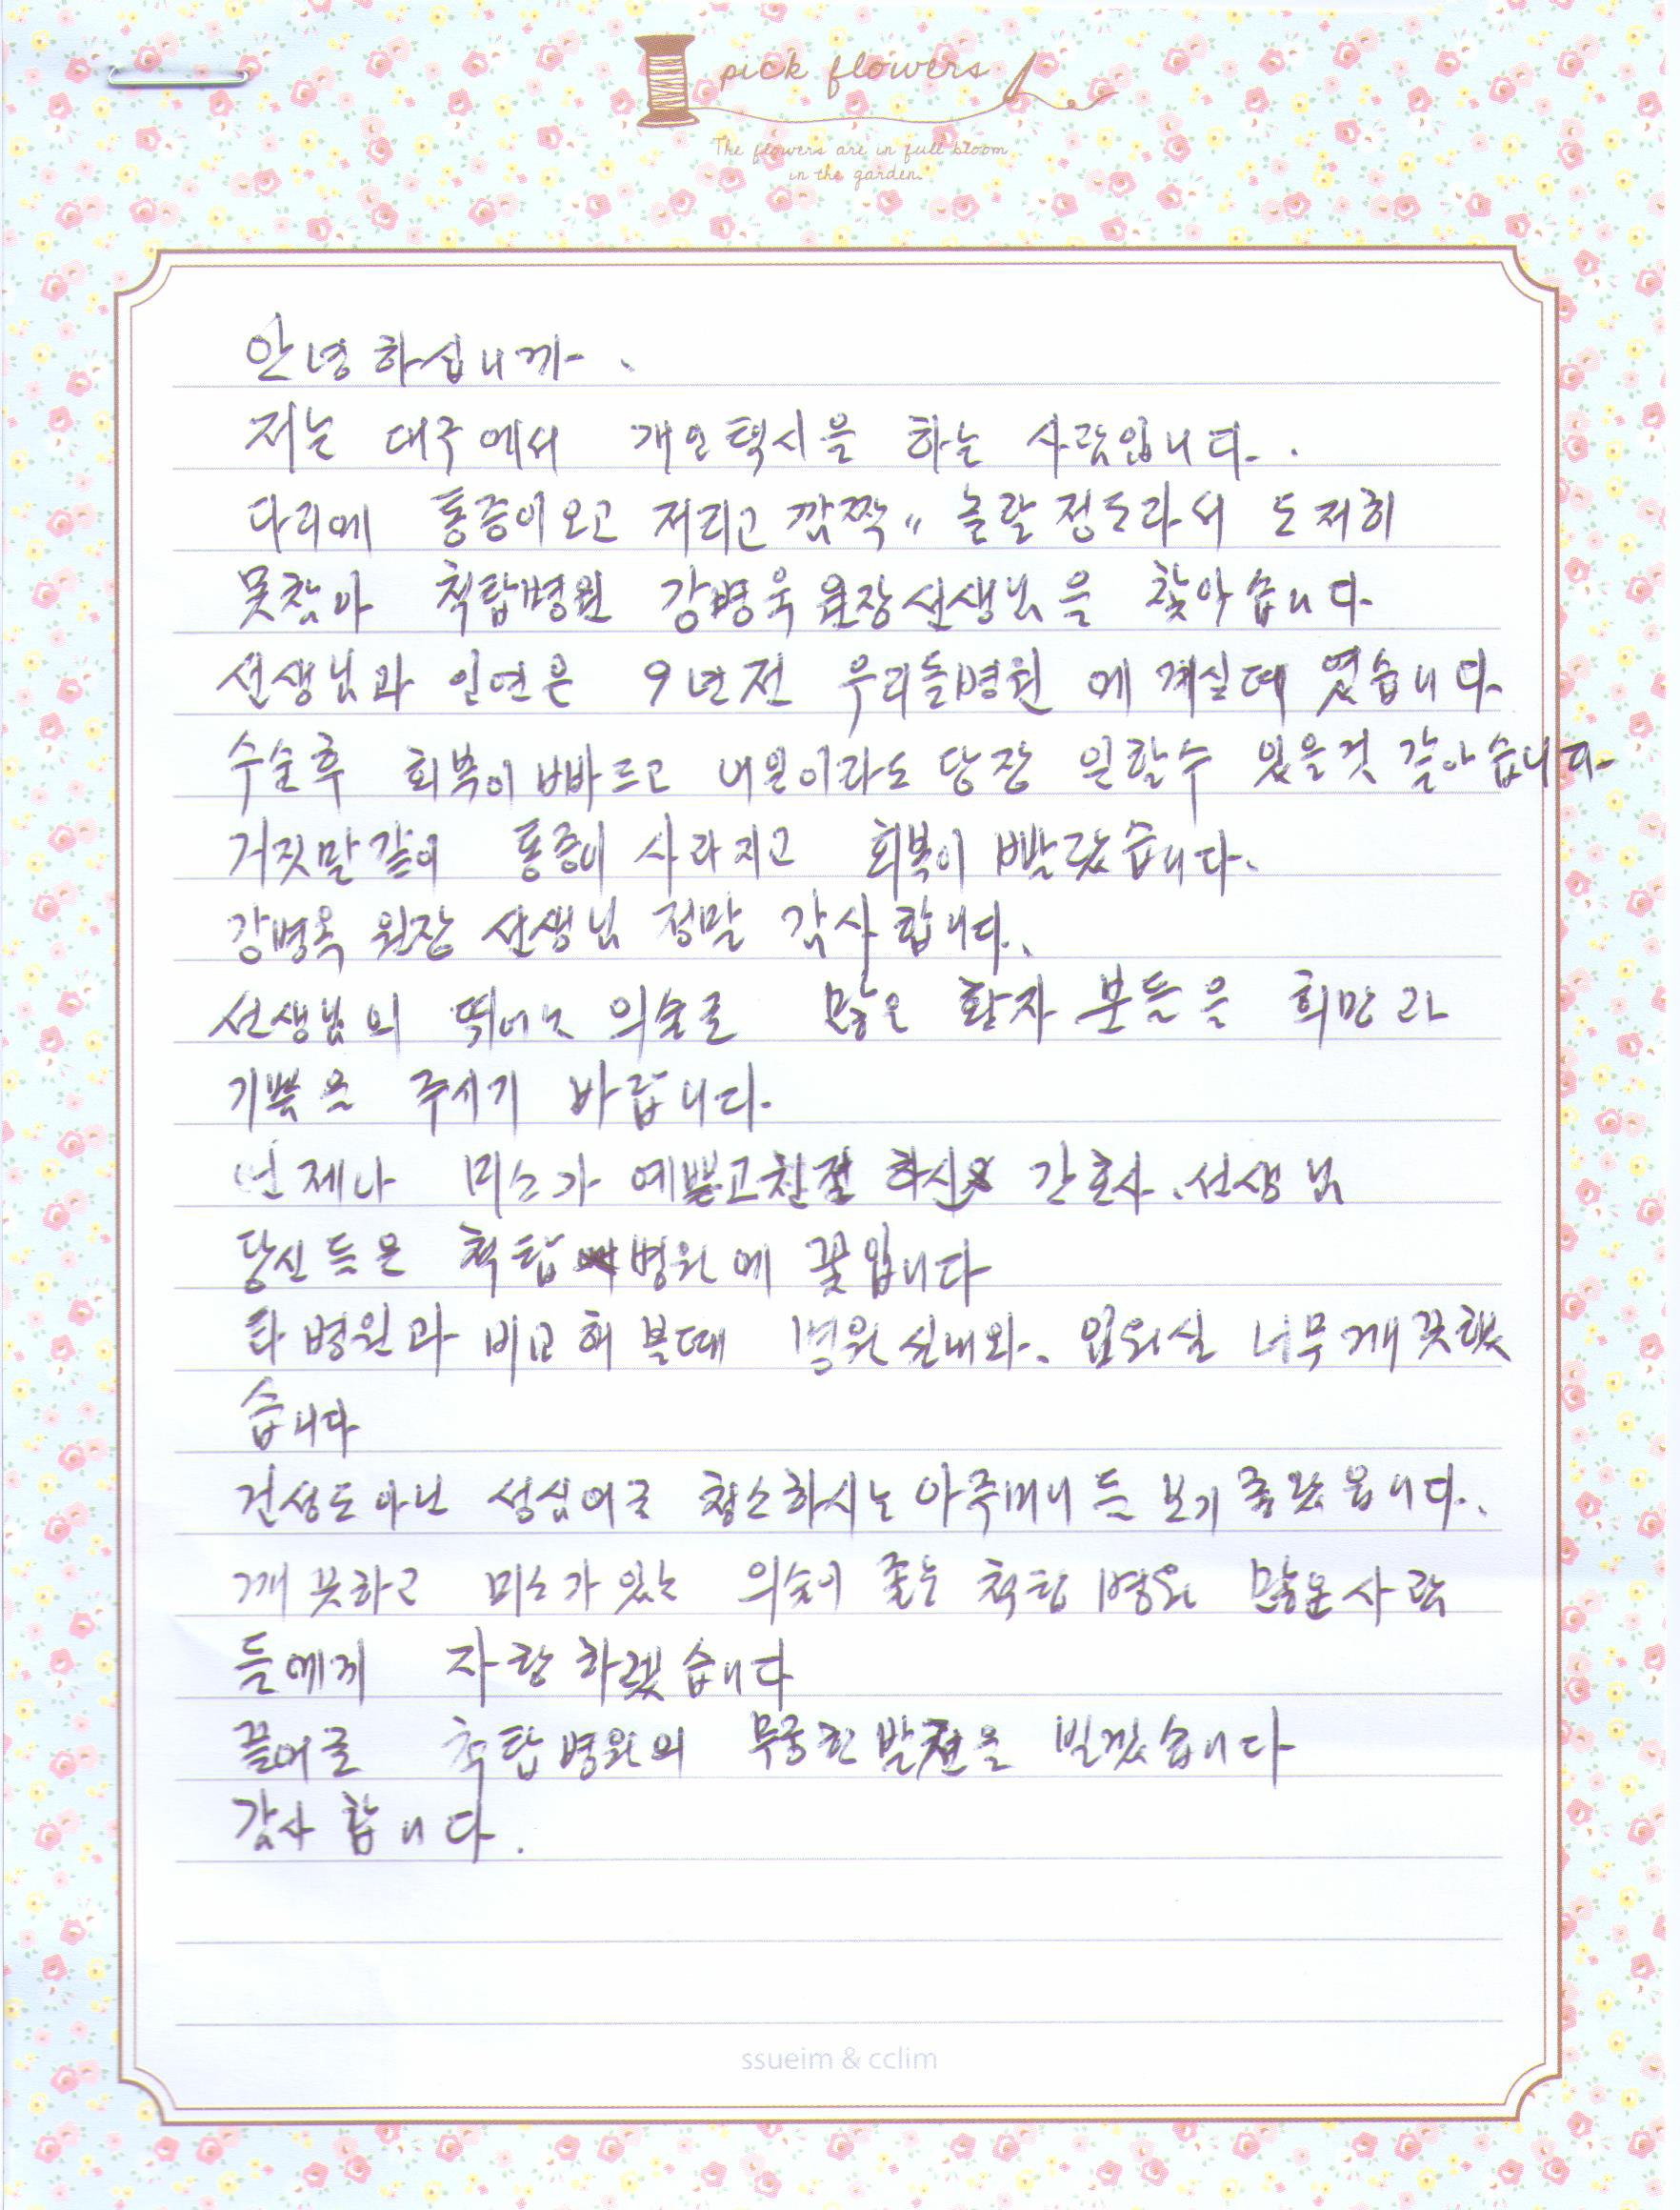 pick flowers
The flowers are in full bloom
in the garden.
안녕하십니까.
저는 대구에서 개인택시을 하는 사람입니다.
다리에 통증이오고 저리고 깜짝〃 놀랄정도라서 도저히
못참아 척탑병원 강병욱원장선생님을 찾아습니다
선생님과 인연은 9년전 우리들병원 에 계실때 였습니다.
수술후 회복이 빠르고 내일이라도 당장 일할수 있을것 같아습니다.
거짓말같이 통증이 사라지고 회복이 빨랐습니다.
강병욱 원장 선생님 정말 감사합니다.
선생님의 뛰어난 의술로 많은 환자 분들을 희망과
기쁨을 주시기 바랍니다.
언제나 미소가 예쁘고친절 하신 간호사.선생님
당신들은 척탑병원에 꽃입니다
타병원과 비교해 볼때 병원실내와. 입원실 너무깨끗했
습니다
건성도아닌 성심어로 청소하시는아주머니들 보기좋았읍니다.
깨끗하고 미소가있는 의술이 좋은 척탑병원 많은사람
들에게 자랑하겠습니다
끝어로 척탑병원의 무궁한발전을 빌겠습니다
감사합니다.
ssueim & cclim